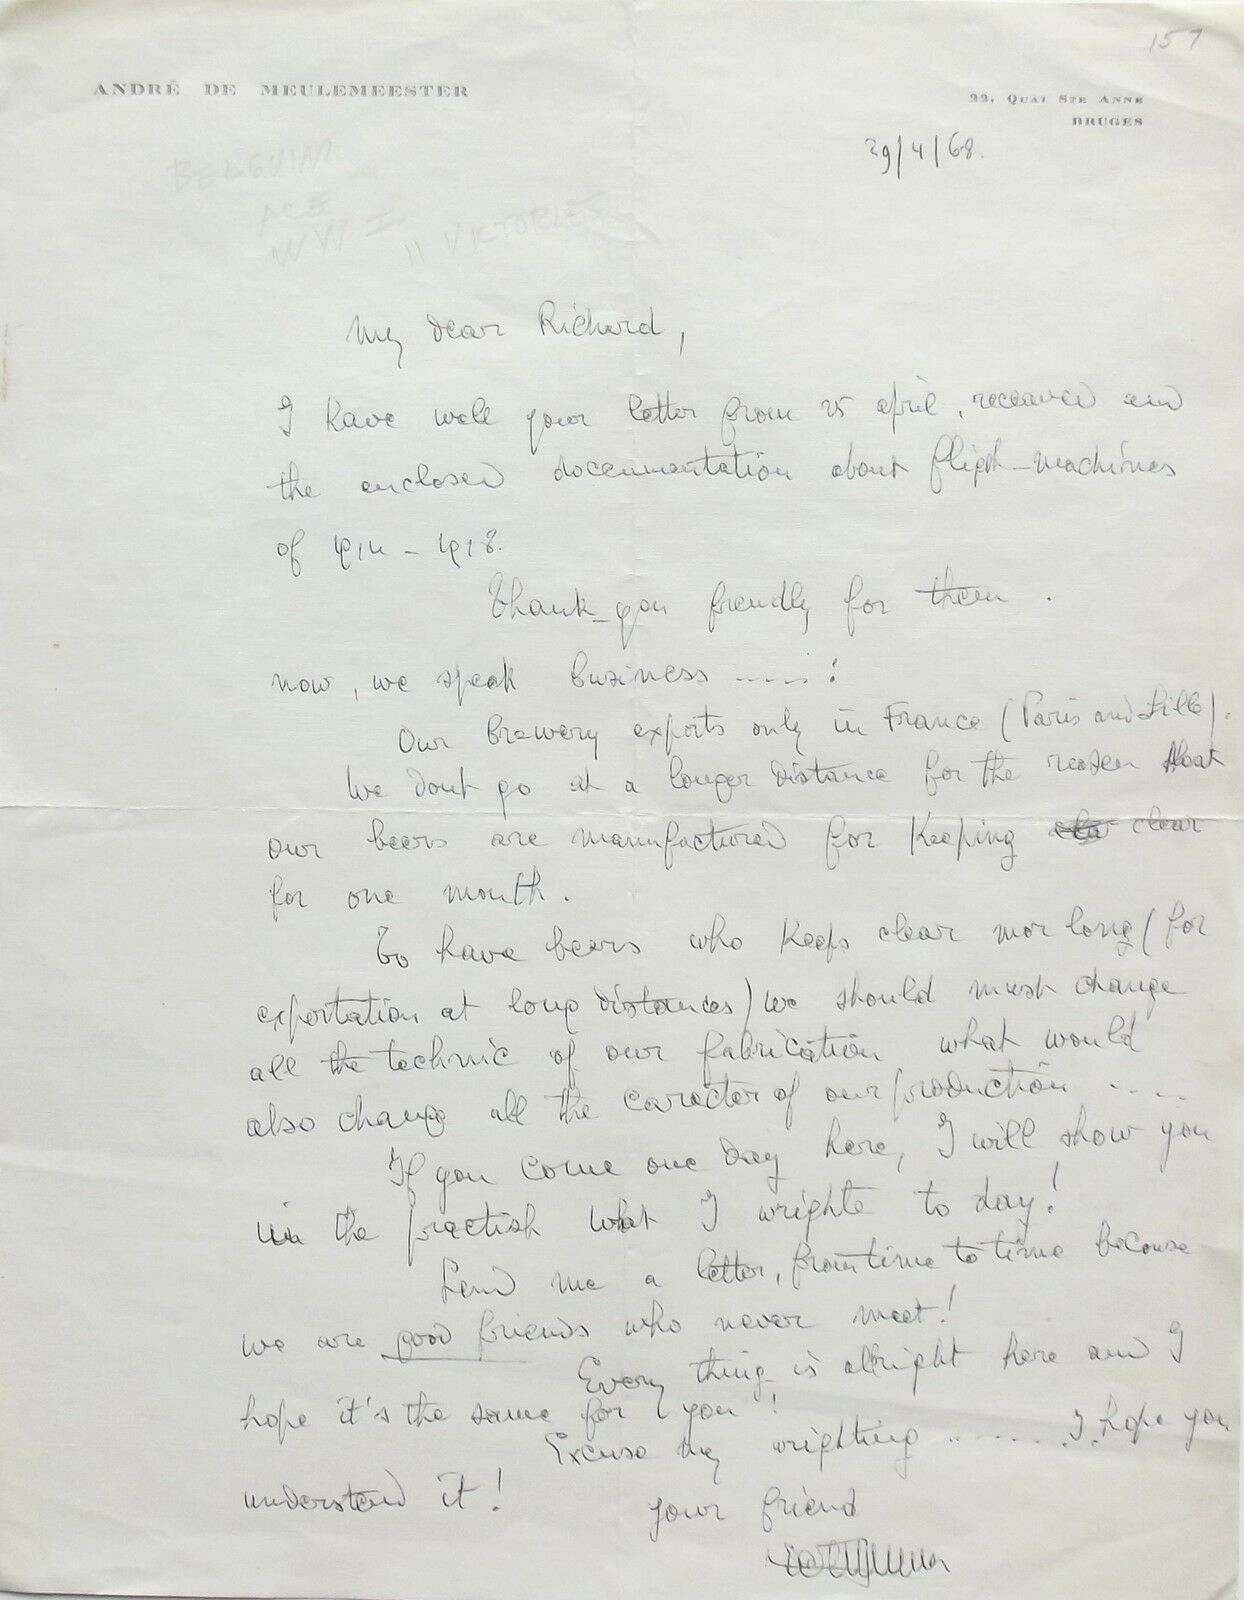 157
ANDRÉ DE MEULEMEESTER
22, QUAI STE ANNE
BRUGES
29/4/68.
BELGUIM
ACE
WW I
11 VICTORIES
My dear Richard,
I have well your letter from 25 april, receaved and
the enclosed documentation about fligth-machines
of 1914 - 1918.
Thank-you friendly for them.
now, we speak business .....:
Our brewery exports only in France (Paris and Lille).
We dont go at a longer distance for the reason that
our beers are manufactured for keeping clear
for one month.
To have beers who keeps clear mor long (for
exportation at long distances) we should must change
all the technic of our fabrication what would
also change all the caracter of our production ....
If you come one day here, I will show you
in the practish what I wrighte to day!
Send me a letter, from time to time because
we are good friends who never meet!
Every thing is allright here and I
hope it's the same for you!
Excuse my wrighting ........ I hope you
understand it!
your friend